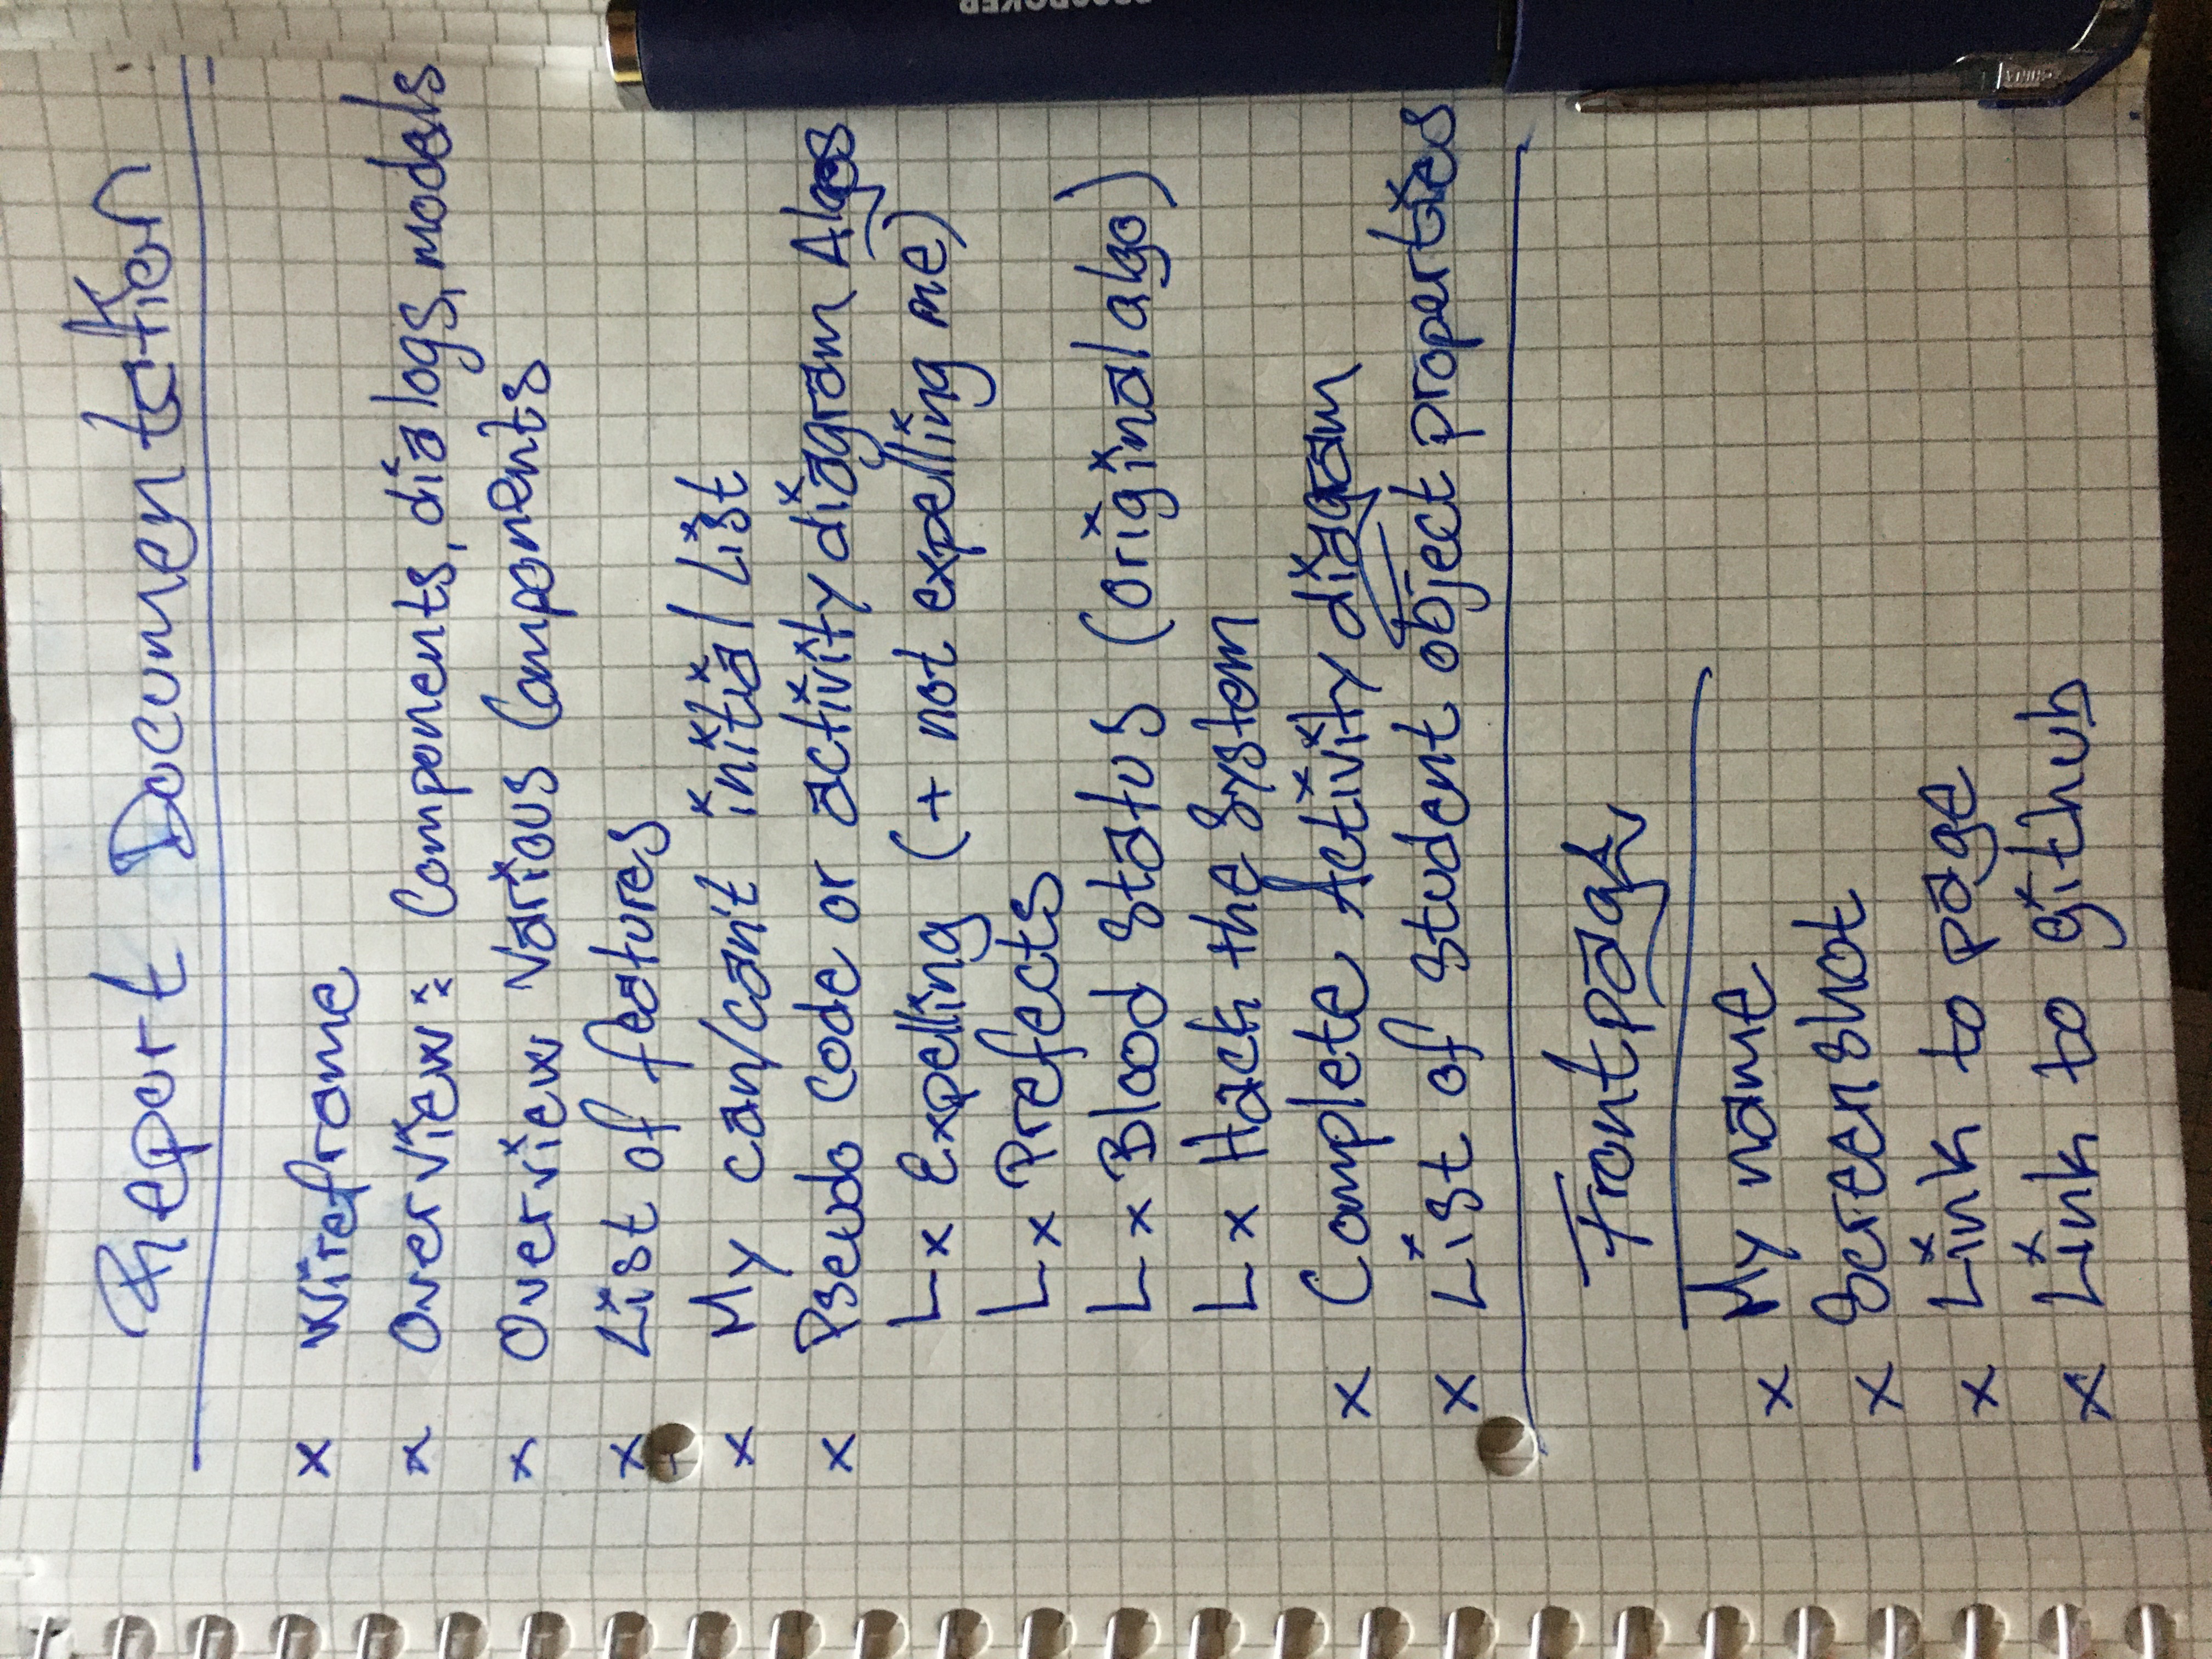 Report Documentation
x Wireframe
x Overview: Components, dialogs, models
x Overview Various Components
x List of features
x My can/can't initial List
x Pseudo Code or activity diagram Algos
L x Expelling (+ not expelling me)
L x Prefects
L x Blood Status (original algo)
L x Hack the System
x Complete Activity diagram
x List of student object properties
Frontpage
x My name
x Screenshot
x Link to page
x Link to github